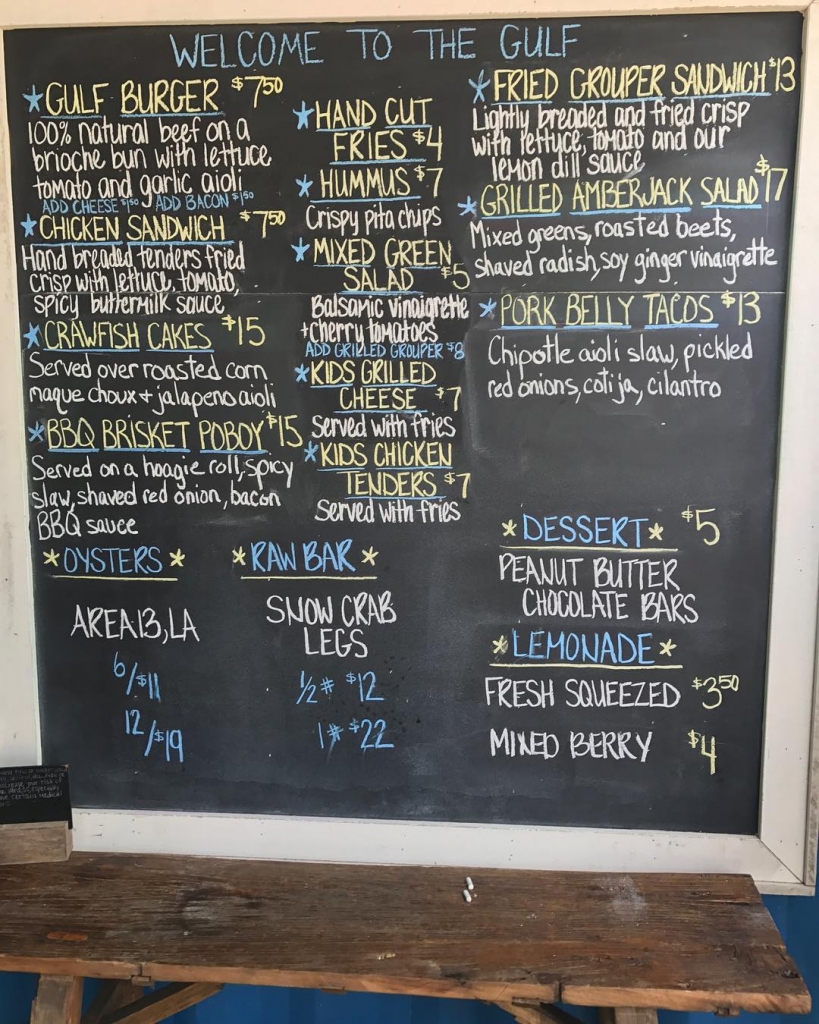 WELCOME TO THE GULF
GULF BURGER $7.50
100% natural beef on a
brioche bun with lettuce
tomato and garlic aioli
ADD CHEESE $1.50 ADD BACON $1.50
CHICKEN SANDWICH $7.50
Hand breaded tenders fried
crisp with lettuce, tomato,
spicy buttermilk sauce
CRAWFISH CAKES $15
Served over roasted corn
maque choux + jalapeno aioli
BBQ BRISKET POBOY $15
Served on a hoagie roll, spicy
slaw, shaved red onion, bacon
BBQ sauce
HAND CUT
FRIES $4
HUMMUS $7
Crispy pita chips
MIXED GREEN
SALAD $5
Balsamic vinaigrette
+ cherry tomatoes
ADD GRILLED GROUPER $8
KIDS GRILLED
CHEESE $7
Served with fries
KIDS CHICKEN
TENDERS $7
Served with fries
FRIED GROUPER SANDWICH $13
Lightly breaded and fried crisp
with lettuce, tomato and our
lemon dill sauce
GRILLED AMBERJACK SALAD $17
Mixed greens, roasted beets,
shaved radish, soy ginger vinaigrette
PORK BELLY TACOS $13
Chipotle aioli slaw, pickled
red onions, cotija, cilantro
OYSTERS
AREA 13, LA
6/$11
12/$19
RAW BAR
SNOW CRAB
LEGS
1/2# $12
1# $22
DESSERT $5
PEANUT BUTTER
CHOCOLATE BARS
LEMONADE
FRESH SQUEEZED $3.50
MIXED BERRY $4